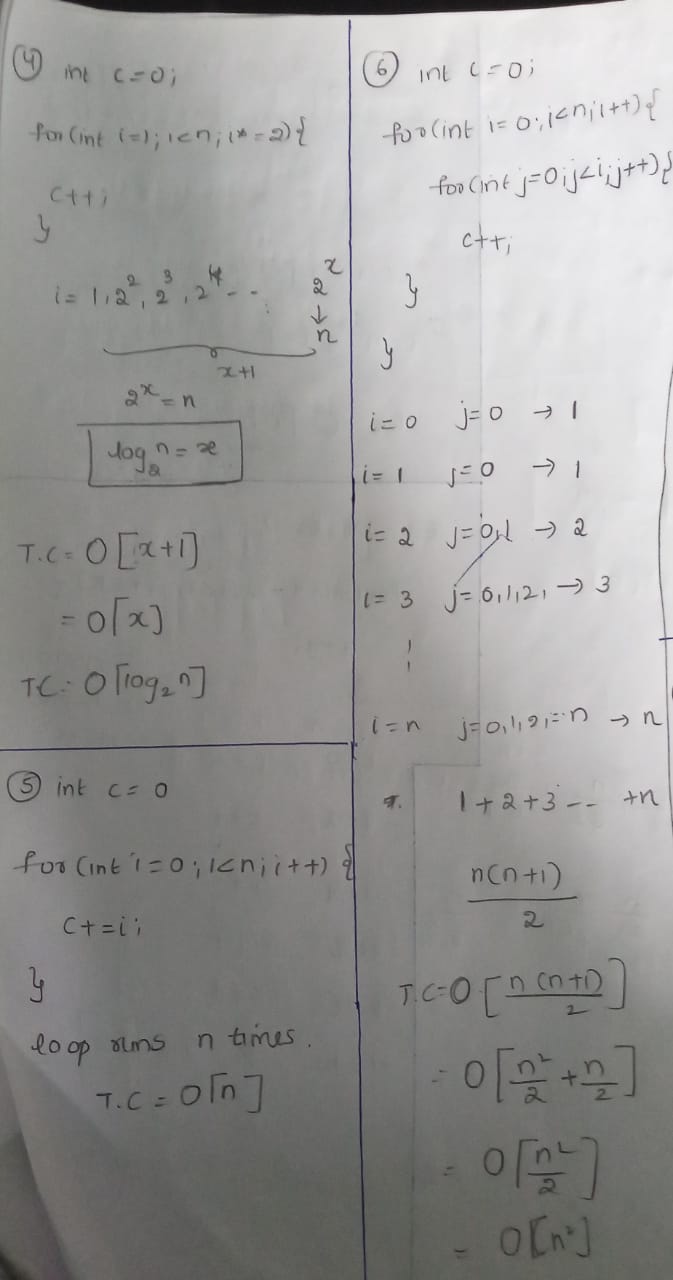 ④ int c=0;
for(int i=1; i<n; i*=2){
c++;
}
i= 1, 2², 2³, 2⁴ -- 2ˣ
↓
n
x+1
2ˣ = n
log₂n = x
T.C = O[x+1]
= O[x]
TC = O[log₂n]
⑤ int c= 0
for(int i=0; i<n; i++) {
c+=i;
}
loop runs n times.
T.C = O[n]
⑥ int c=0;
for(int i=0; i<n; i++){
for(int j=0; j<i; j++){
c++;
}
}
i=0 j=0 → 1
i=1 j=0 → 1
i=2 j=0,1 → 2
i=3 j=0,1,2, → 3
i=n j=0,1,2,=n → n
1+2+3-- +n
n(n+1)
2
T.C=O[n(n+1)/2]
= O[n²/2 + n/2]
= O[n²/2]
= O[n²]